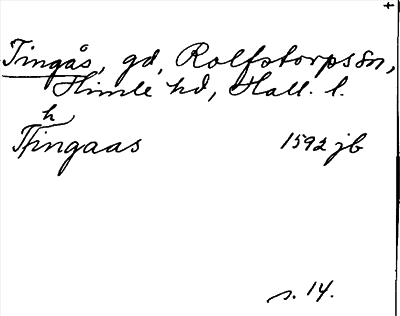 +
Tingås, gd, Rolfstorps sn,
Himle hd, Hall. l.
h
Tingaas 1592 jb
s. 14.